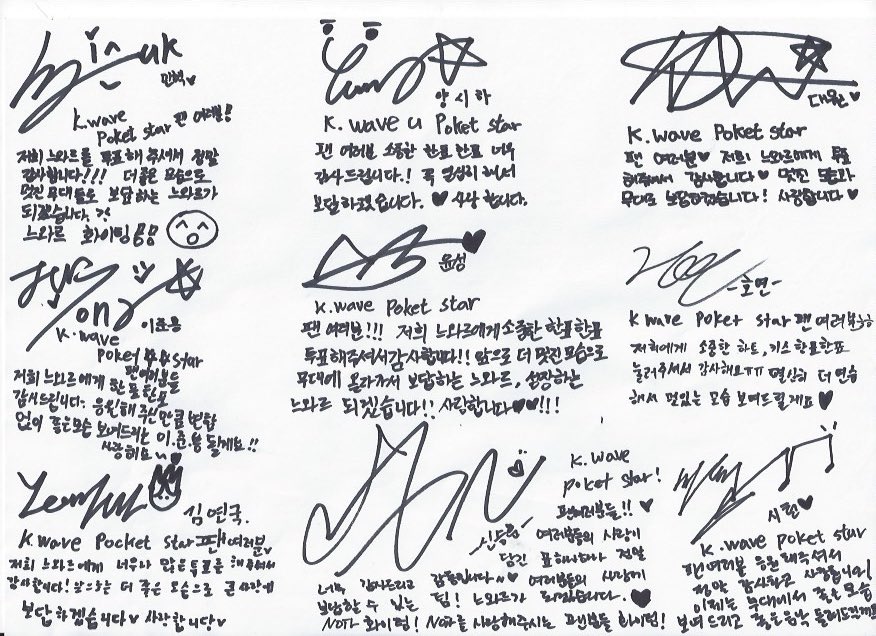 minuk
민혁♥
K.wave
Poket star 팬 여러분!
저희 느와르를 투표해 주셔서 정말
감사합니다!!! 더 좋은 모습으로
멋진 무대들로 보답하는 느와르가
되겠습니다.
느와르 화이팅
양시하
K.wave u Poket star
팬 여러분 소중한 한표 한표 너무
감사드립니다.! 꼭 열심히 해서
보답하겠습니다. ♥ 사랑합니다.
대원♥
K.wave Poket star
팬 여러분♥ 저희 느와르에게 투표
해주셔서 감사합니다♥ 멋진 모습과
무대로 보답하겠습니다! 사랑합니다♥
Jun Yong
이준용
K.wave
Poket star
팬여러분들
저희 느와르에게 한표 한표
감사드립니다. 응원해 주신 만큼 변함
없이 좋은모습 보여드리는 이.준.용 될게요!!
사랑해요
윤성
K.wave Poket star
팬 여러분!!! 저희 느와르에게 소중한 한표한표
투표해주셔서감사합니다!! 앞으로 더 멋진모습으로
무대에 올라가서 보답하는 느와르, 성장하는
느와르 되겠습니다!! 사랑합니다♥♥!!!
-호연-
K wave Poket star 팬여러분
저희에게 소중한 하트, 키스 한표한표
눌러주셔서 감사해요ㅠㅠ 열심히 더 연습
해서 멋있는 모습 보여드릴게요♥
김연국.
K wave Pocket star 팬여러분
저희 느와르에게 너무나 많은투표를 해주셔서
감사합니다! 앞으로는 더 좋은 모습으로 큰 사랑에
보답하겠습니다♥ 사랑합니다♥
신승훈
K.wave
poket star!
팬여러분들!! ♥
여러분들의 사랑이
담긴 표하나하나 정말
너무 감사드리고 감동입니다~♥ 여러분들의 사랑에
보답할 수 있는 팀! 느와르가 되겠습니다. ♥
NOIR 화이팅! NOIR를 사랑해주시는 팬분들 화이팅!
시헌♥
K.wave poket star
팬 여러분 응원해주셔서
정말 감사하고 사랑합니다!
이제는 무대에서 좋은 모습
보여드리고 좋은음악 들려드릴께요!!